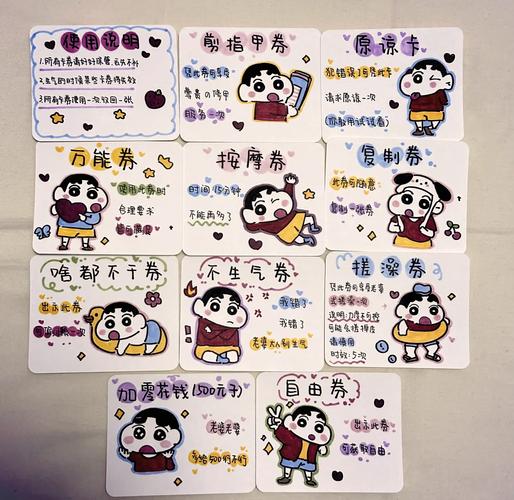 使用说明
1.所有卡券请好好保管,丢失不补
2.生气的时候某些卡券得失效
3.所有卡券使用一次收回一张
剪指甲券
凭此券可享受
零责の修甲
服务一次
原谅卡
犯错误了凭此卡
请求原谅一次
你敢用试试看
万能券
使用此券时
合理要求
皆可满足
按摩券
时间15分钟
不能再多了
复制券
此券可随意
复制一张券
啥都不干券
出示此券
不生气券
我错了
我错了
老婆大人别生气
搓澡券
凭此券可享受老婆
式搓澡一次
说明:力度不可控
可能会搓掉皮
请慎用
时效:5次
加零花钱(500元子)
老婆老婆
多给500行不行
自由券
出示此券
可获取自由